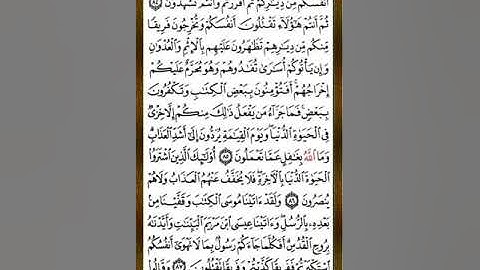 أَنفُسَكُم مِّن دِيَٰرِكُمْ ثُمَّ أَقْرَرْتُمْ وَأَنتُمْ تَشْهَدُونَ ٨٤
ثُمَّ أَنتُمْ هَٰٓؤُلَآءِ تَقْتُلُونَ أَنفُسَكُمْ وَتُخْرِجُونَ فَرِيقًا
مِّنكُم مِّن دِيَٰرِهِمْ تَظَٰهَرُونَ عَلَيْهِم بِٱلْإِثْمِ وَٱلْعُدْوَٰنِ
وَإِن يَأْتُوكُمْ أُسَٰرَىٰ تُفَٰدُوهُمْ وَهُوَ مُحَرَّمٌ عَلَيْكُمْ
إِخْرَاجُهُمْ ۚ أَفَتُؤْمِنُونَ بِبَعْضِ ٱلْكِتَٰبِ وَتَكْفُرُونَ
بِبَعْضٍ ۚ فَمَا جَزَآءُ مَن يَفْعَلُ ذَٰلِكَ مِنكُمْ إِلَّا خِزْىٌ
فِى ٱلْحَيَوٰةِ ٱلدُّنْيَا ۖ وَيَوْمَ ٱلْقِيَٰمَةِ يُرَدُّونَ إِلَىٰٓ أَشَدِّ ٱلْعَذَابِ ۗ
وَمَا ٱللَّهُ بِغَٰفِلٍ عَمَّا تَعْمَلُونَ ٨٥ أُو۟لَٰٓئِكَ ٱلَّذِينَ ٱشْتَرَوُا۟
ٱلْحَيَوٰةَ ٱلدُّنْيَا بِٱلْءَاخِرَةِ ۖ فَلَا يُخَفَّفُ عَنْهُمُ ٱلْعَذَابُ وَلَا هُمْ
يُنصَرُونَ ٨٦ وَلَقَدْ ءَاتَيْنَا مُوسَى ٱلْكِتَٰبَ وَقَفَّيْنَا مِنۢ
بَعْدِهِۦ بِٱلرُّسُلِ ۖ وَءَاتَيْنَا عِيسَى ٱبْنَ مَرْيَمَ ٱلْبَيِّنَٰتِ وَأَيَّدْنَٰهُ
بِرُوحِ ٱلْقُدُسِ ۗ أَفَكُلَّمَا جَآءَكُمْ رَسُولٌۢ بِمَا لَا تَهْوَىٰٓ أَنفُسُكُمُ
ٱسْتَكْبَرْتُمْ فَفَرِيقًا كَذَّبْتُمْ وَفَرِيقًا تَقْتُلُونَ ٨٧ وَقَالُوا۟